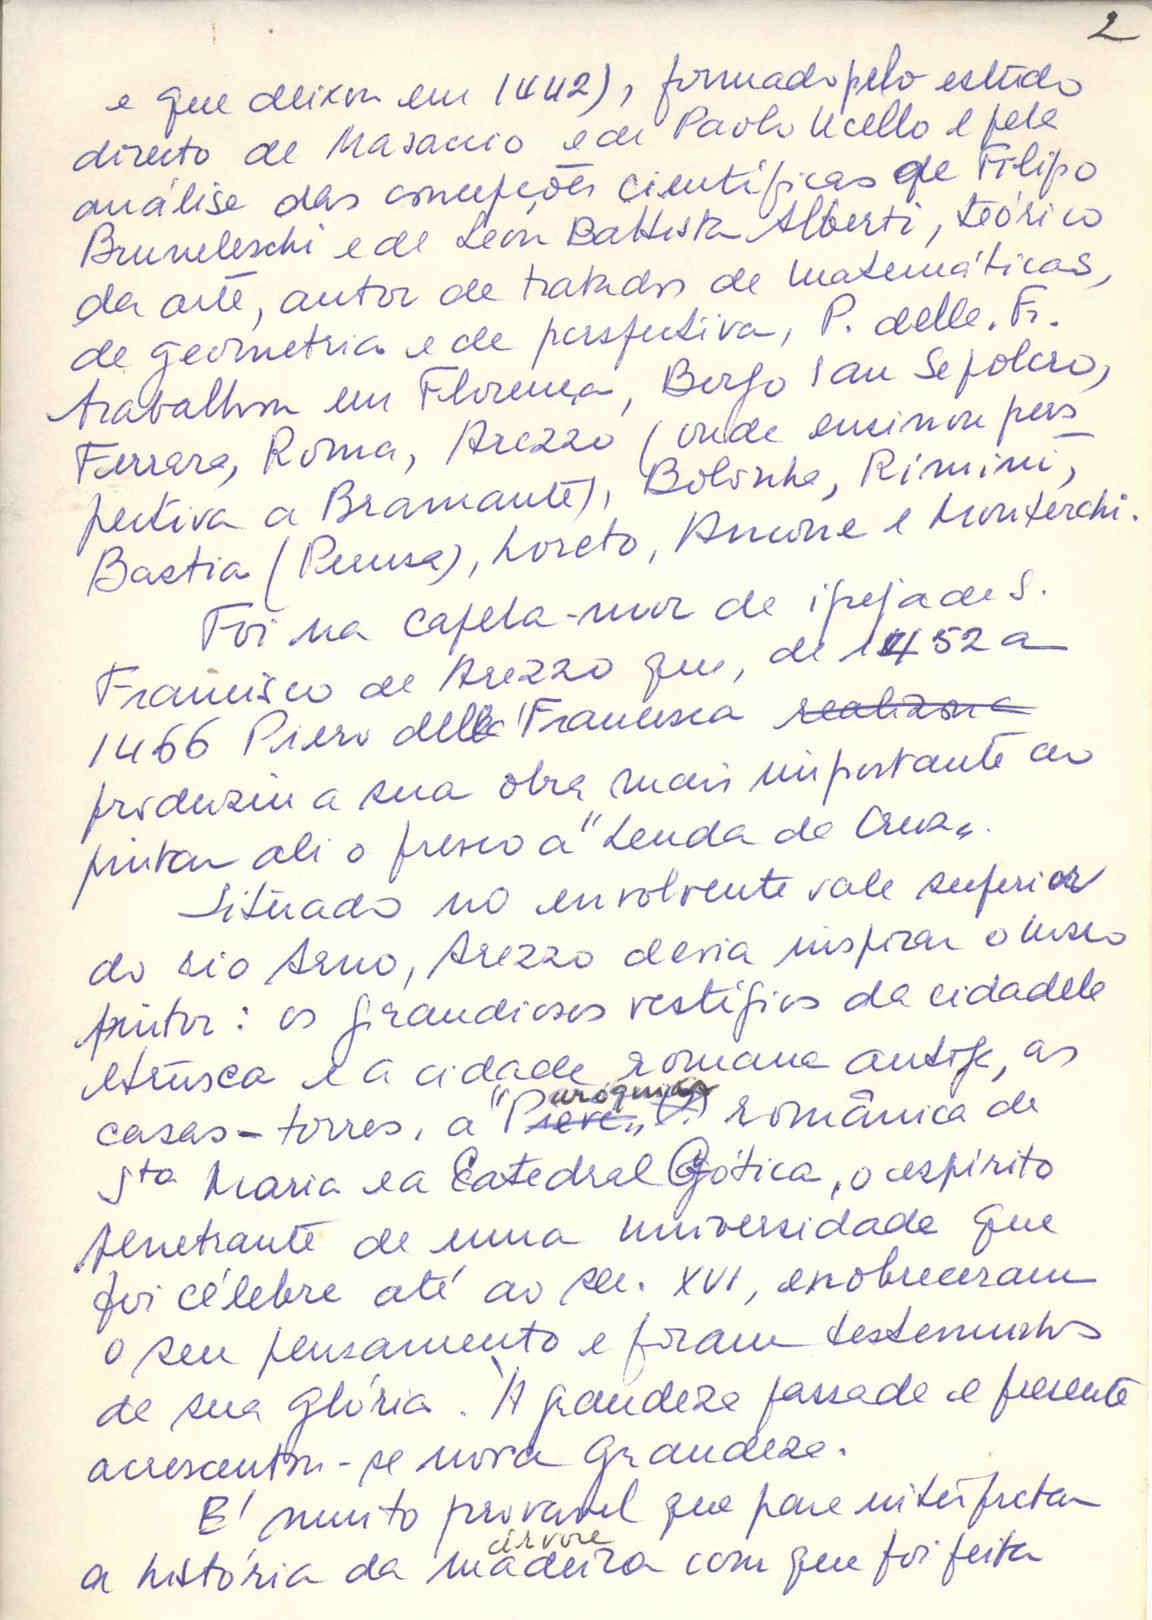 2
e que deixou em 1442), formado pelo estudo
directo de Masaccio e de Paolo Ucello e pela
análise das concepções científicas de Filipo
Bruneleschi e de Léon Battista Alberti, teórico
da arte, autor de tratados de matemáticas,
de geometria e de perspectiva, P. della. Fr.
trabalhou em Florença, Borgo San Sepolcro,
Ferrara, Roma, Arezzo (onde ensinou pers
pectiva a Bramante), Bolonha, Rimini,
Bastia (Perusa), Loreto, Ancona e Monterchi.
Foi na capela-mor de igreja de S.
Francisco de Arezzo que, de 1452 a
1466 Piero della Francesca realizou a
produziu a sua obra mais importante ao
pintar ali o fresco a "Lenda da Cruz".
Situado no envolvente vale superior
do rio Arno, Arezzo devia inspirar o nosso
pintor: os grandiosos vestígios da cidadela
etrusca e a cidade romana antiga, as
paróquias
casas-torres, a "Pieve" (?) românica de
Sta Maria e a Catedral Gótica, o espírito
penetrante de uma universidade que
foi célebre até ao séc. XVI, enobreceram
o seu pensamento e foram testemunhos
de sua glória. À grandeza passada e presente
acrescentou-se nova grandeza.
É muito provavel que para interpretar
árvore
a história da madeira com que foi feita